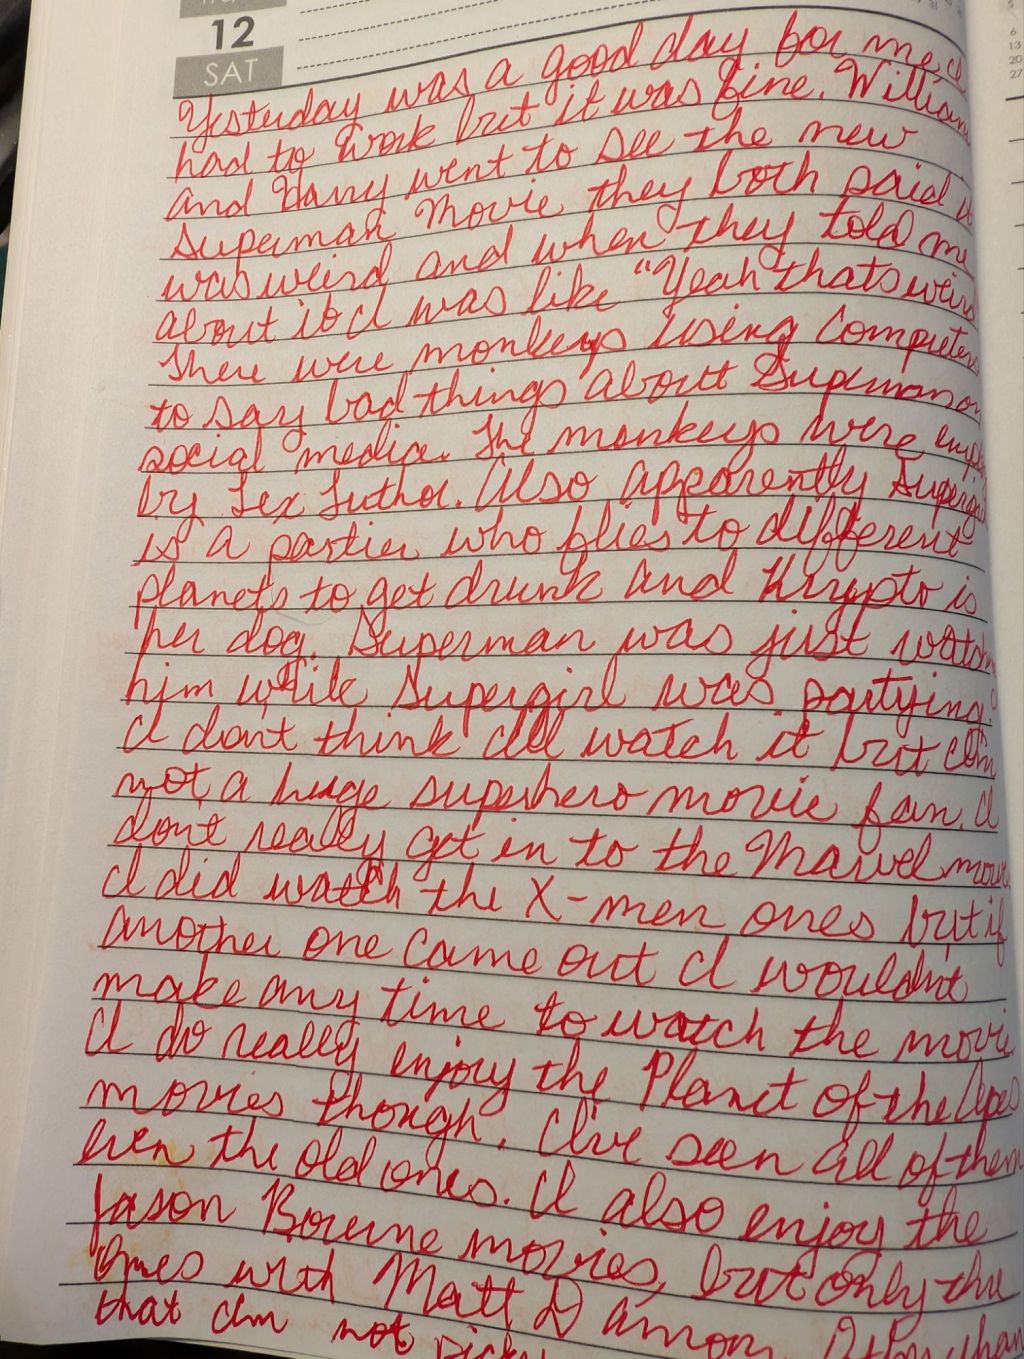 12
SAT
Yesterday was a good day for me, I
had to work but it was fine. William
and Harry went to see the new
Superman Movie they both said it
was weird and when they told me
about it I was like "Yeah thats weird
There were monkeys using Computers
to say bad things about Superman on
social media. The monkeys were
by Lex Luthor. Also apparently Supergirl
is a partier who flies to different
planets to get drunk and Krypto is
her dog. Superman was just
him while Supergirl was partying.
I dont think Ill watch it but Im
not a huge superhero movie fan. I
dont really get in to the Marvel
I did watch the X-men ones but if
another one came out I wouldnt
make any time to watch the movie
I do really enjoy the Planet of the Apes
movies though. I've seen all of them
even the old ones. I also enjoy the
Jason Bourne movies, but only the
Ones with Matt Damon. Other than
that Im not picky
6
13
20
27